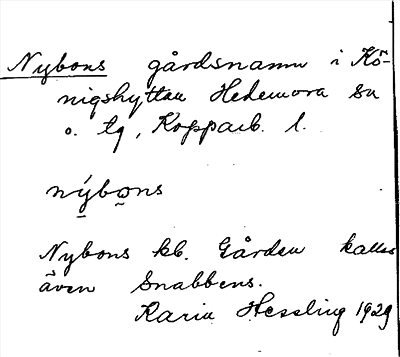 Nybons gårdsnamn i Kö-
nigshyttan Hedemora sn
o. tg, Kopparb. l.
nýbo̰ns
Nybons kb. Gården kallas
även Snabbens.
Karin Hessling 1929